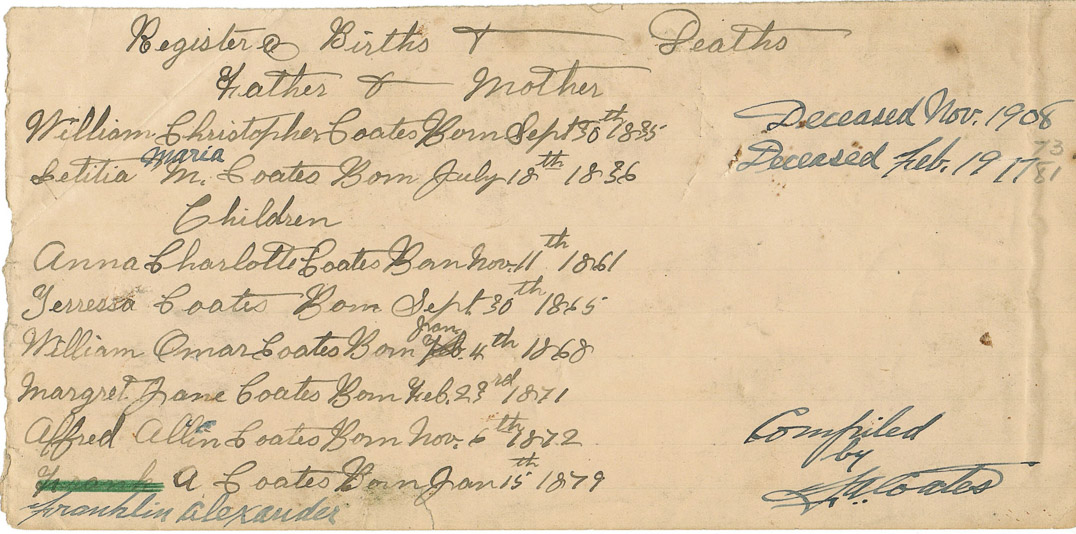 Register of Births & Deaths
Father & Mother
William Christopher Coates Born Sept 30th 1835 Deceased Nov. 1908
73
Maria
Letitia M. Coates Born July 18th 1836 Deceased Feb. 1917
81
Children
Anna Charlotte Coates Born Nov. 11th 1861
Terressa Coates Born Sept 30th 1865
Jan.
William Omar Coates Born Feb. 4th 1868
Margret Jane Coates Born Feb. 23rd 1871
Alfred Allin Coates Born Nov. 6th 1872
Frank A Coates Born Jan 15th 1879
Franklin Alexander
Compiled
by
Coates